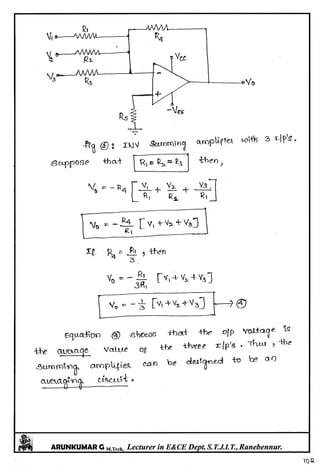 R1
V1
R4
V2
R2
Vcc
V3
R3
-
Vo
+
-VEE
R5
Fig ④: INV Summing amplifier with 3 I/p's.
Suppose that R1 = R2 = R3 then,
Vo = - R4 [ V1/R1 + V2/R1 + V3/R1 ]
Vo = - R4/R1 [ V1 + V2 + V3 ]
If R4 = R1/3 , then
Vo = - R1/3R1 [ V1 + V2 + V3 ]
Vo = - 1/3 [ V1 + V2 + V3 ] → ④
Equation ④ shows that the o/p voltage is
the average value of the three I/p's. Thus, the
summing amplifier can be designed to be an
averaging circuit.
ARUNKUMAR G M.Tech, Lecturer in E&CE Dept. S.T.J.I.T., Ranebennur.